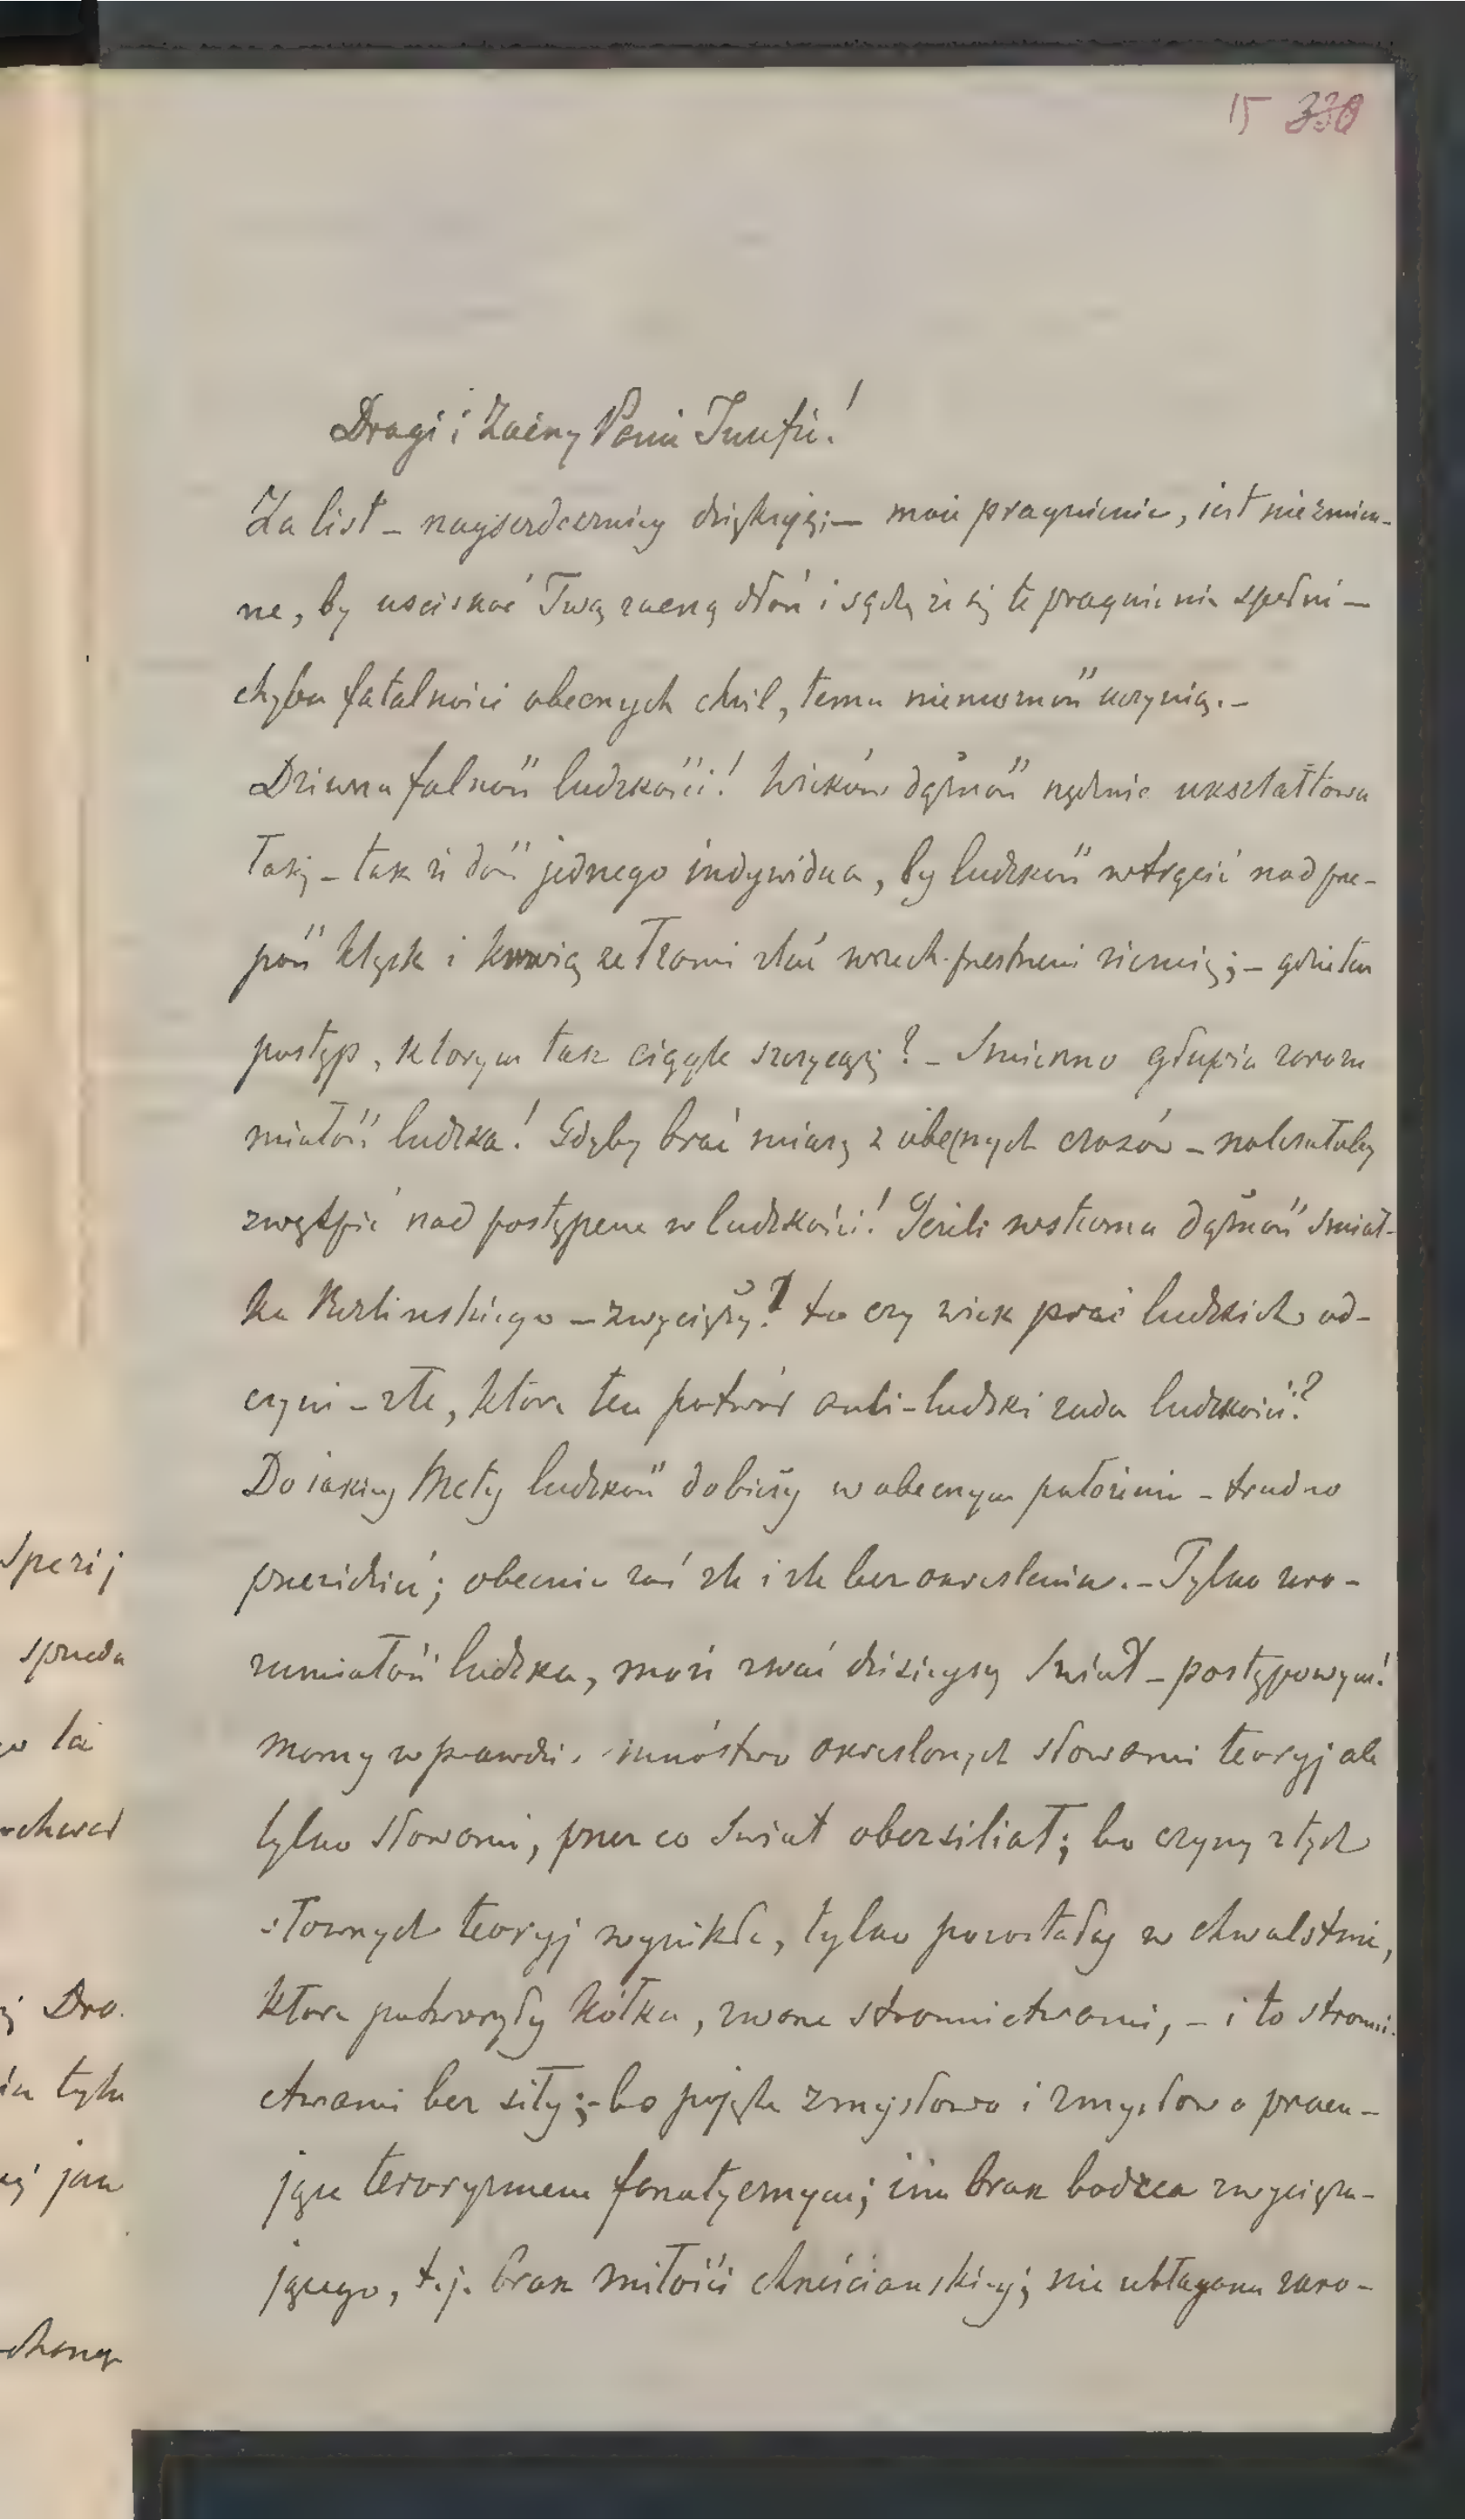 15 330
Drogi i Zacny Panie Józefie!
Za list – najserdeczniej dziękuję; – moie pragnienie, iest niezmien-
ne, by uściskać Twą zacną dłoń i sądzę że się te pragnienie spełni –
chyba fatalności obecnych chwil, temu niemożność uczynią. –
Dziwna falność ludzkości! Wieków dążność nędznie ukształtowa
ła się – tak że dość jednego indywidua, by ludzkość wtrącić nad prze-
paść klęsk i krwią ze łzami zlać wszech-przestrzeni ziemię; – gdzie ten
postęp, którym tak ciągle szczycą się? – Śmieszno głupia zarozu
miałość ludzka! Gdyby brać miarę z obecnych czasów – należałoby
zwątpić nad postępem w ludzkości! Jeżeli wsteczna dążność Świat-
ka Berlinskiego – zwycięży? to czy wiek prac ludzkich od-
czyni – złe, które ten potwór anti-ludzki zada ludzkości?
Do iakiej Mety ludzkość dobieży w obecnym położeniu – trudno
przewidzieć; obecnie zaś źle i źle bez okreslenia. – Tylko zaro-
zumiałość ludzka, może zwać dzisiejszy Świat – postępowym!
mamy w prawdzie mnóstwo okreslonych słowami teoryj ale
tylko słowami, przez co świat obezsiliał; bo czyny z tych
słownych teoryj wynikłe, tylko pozostały w chwalstwie,
które potworzyły kółka, zwane stronnictwami, – i to stronni-
ctwami bez siły; – bo pojęte zmysłowo i zmysłowo pracu-
jące teroryzmem fanatycznym; im brak bodzca zwycięża-
jącego, t.j. brak miłości chrześcianskiej; nie ubłagana zaro-
Sperij
sprzeda
tylu
jak